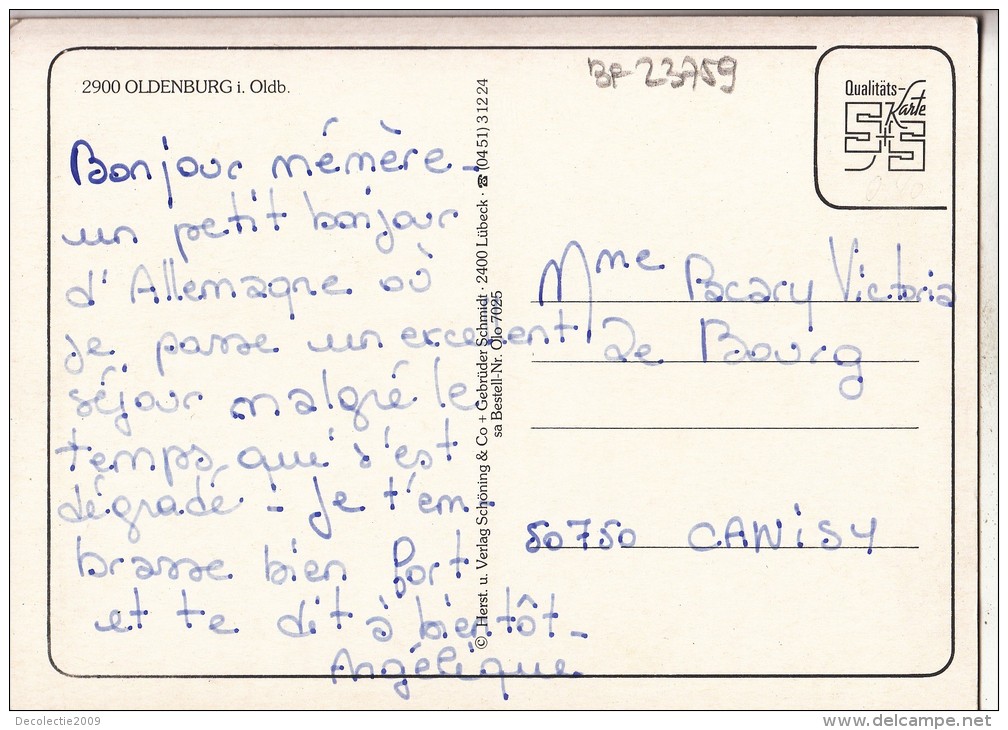 2900 OLDENBURG i. Oldb.
BF 23759
Qualitäts-
Karte
S+S
Bonjour mémère -
un petit bonjour
d'Allemagne où
je passe un excellent
séjour malgré le
temps, qui s'est
dégradé - Je t'em-
brasse bien fort
et te dit à bientôt -
Angélique
© Herst. u. Verlag Schöning & Co + Gebrüder Schmidt · 2400 Lübeck · ☎ (04 51) 3 12 24
sa Bestell-Nr. Olo 7025
Mme Pacary Victoria
Le Bourg
50750 CANISY
Decolectie2009
www.delcampe.net